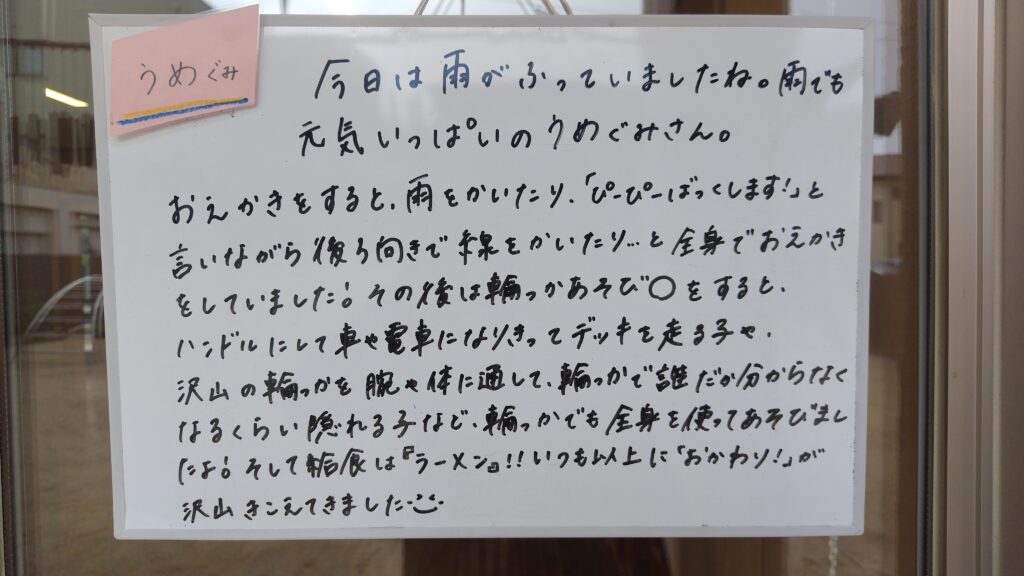 うめぐみ
今日は雨がふっていましたね。雨でも
元気いっぱいのうめぐみさん。
おえかきをすると、雨をかいたり、「ぴーぴーばっくします!」と
言いながら後ろ向きで線をかいたり…と全身でおえかき
をしていました!その後は輪っかあそび〇をすると、
ハンドルにして車や電車になりきってデッキを走る子や、
沢山の輪っかを腕や体に通して、輪っかで誰だか分からなく
なるくらい隠れる子など、輪っかでも全身を使ってあそびまし
たよ!そして給食は『ラーメン』!!いつも以上に「おかわり!」が
沢山きこえてきました